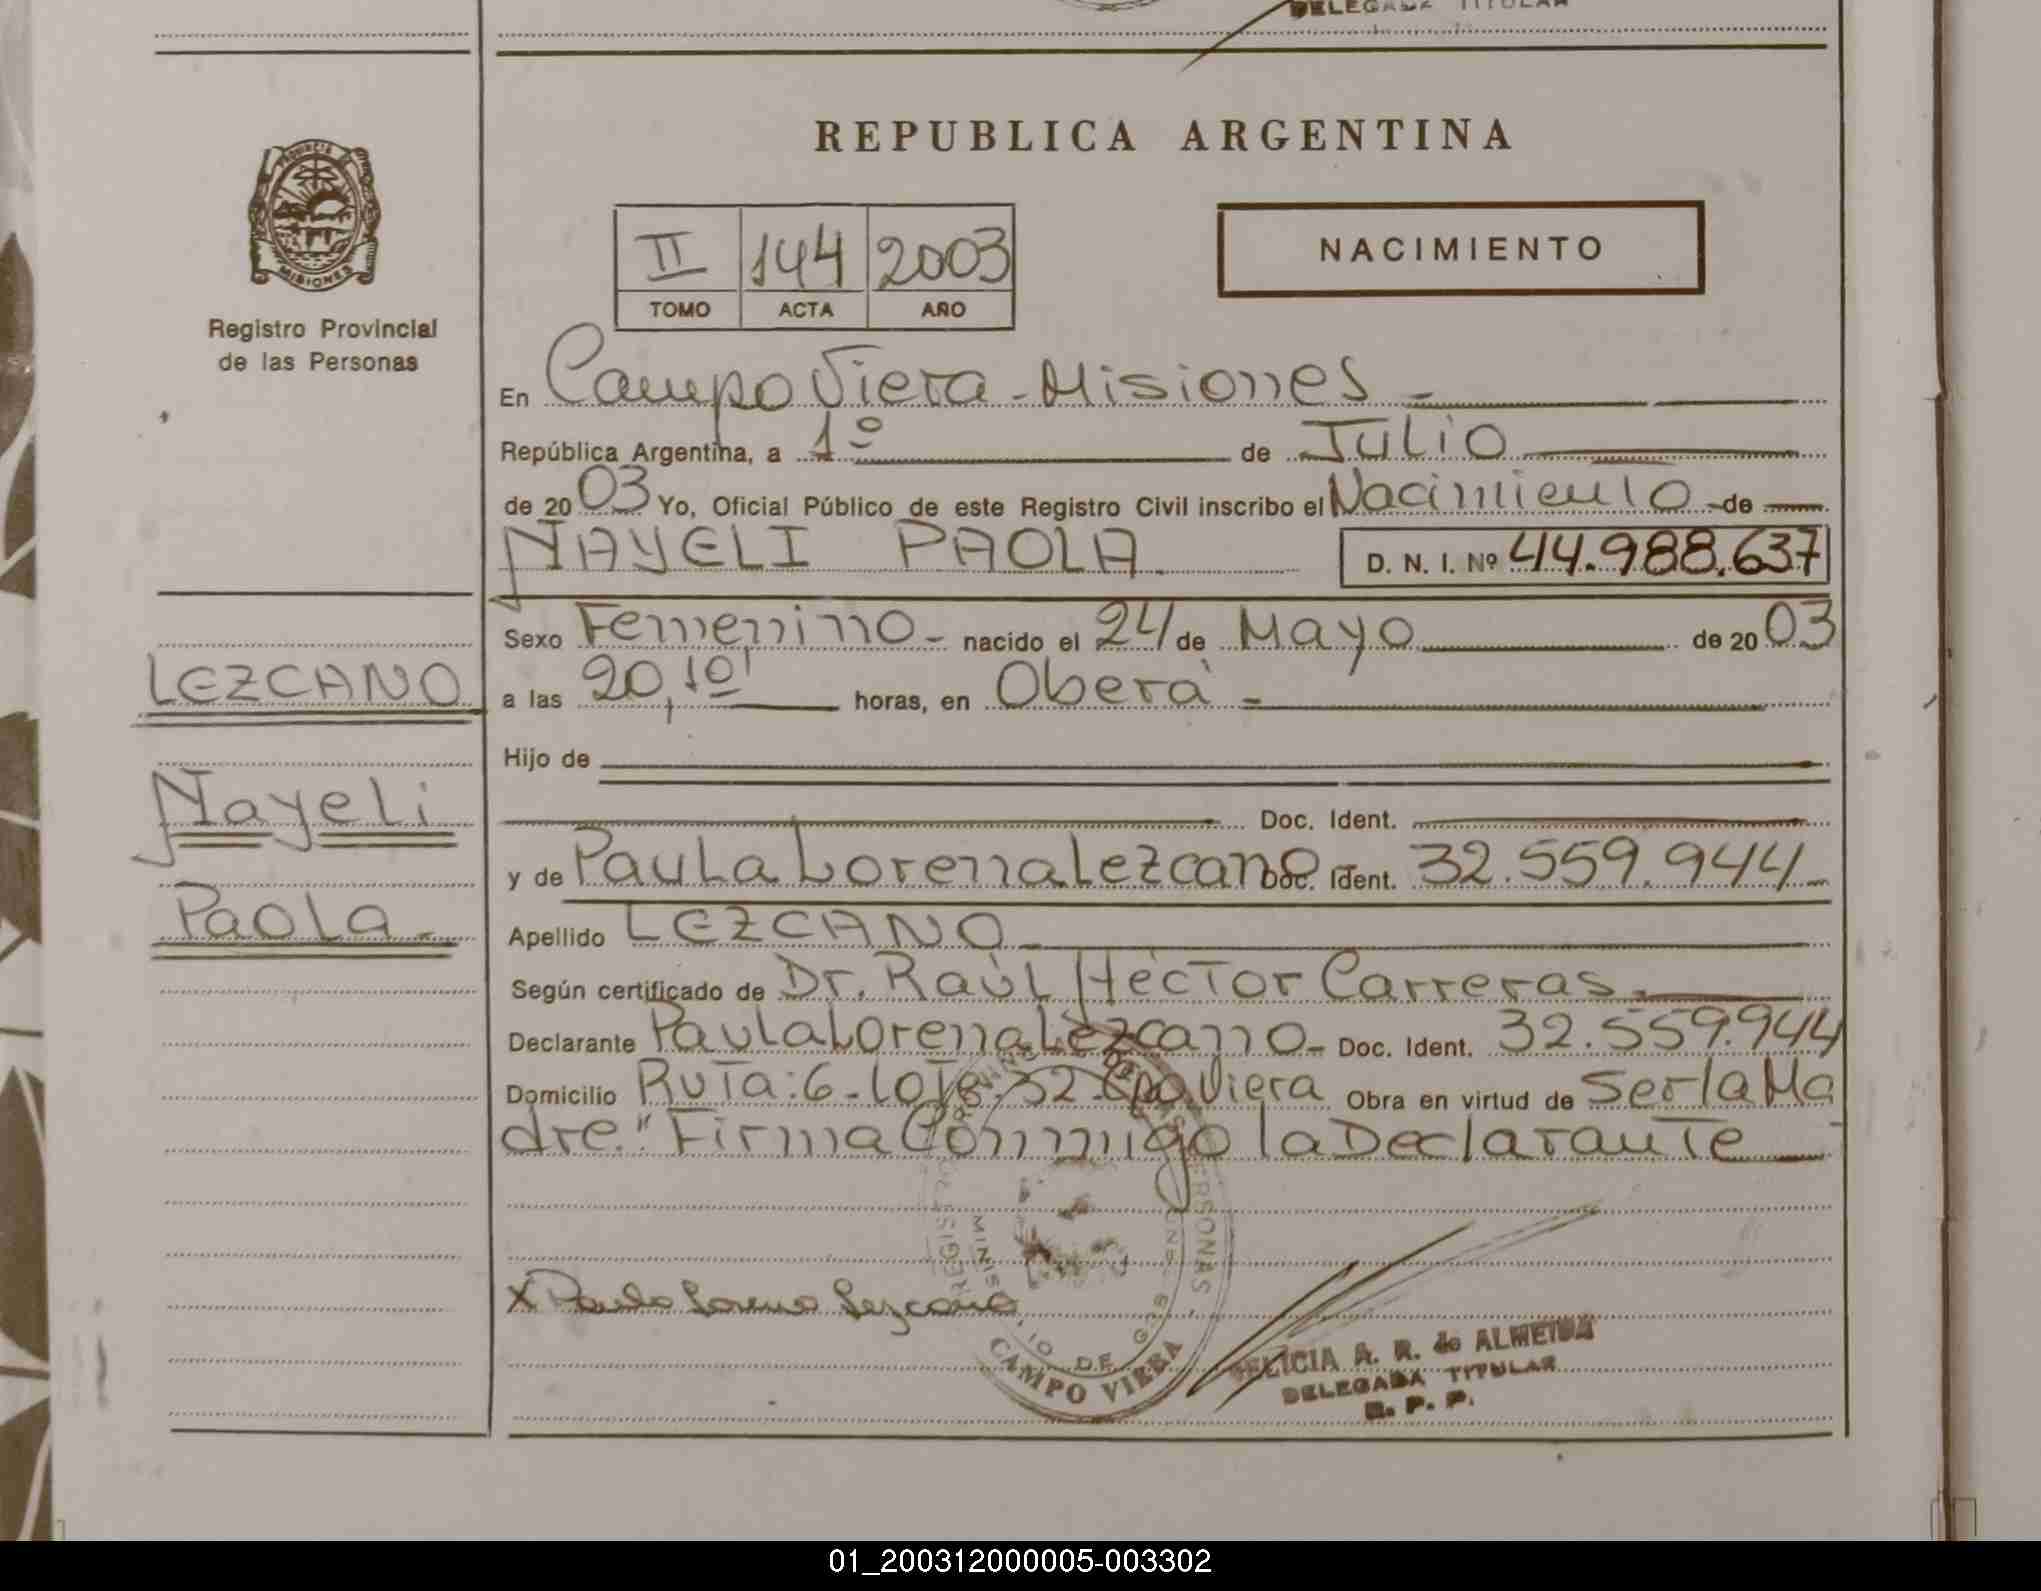 DELEGADA TITULAR
REPUBLICA ARGENTINA
PROVINCIA DE
MISIONES
Registro Provincial
de las Personas
II 144 2003
TOMO ACTA AÑO
NACIMIENTO
En Campo Viera - Misiones -
República Argentina, a 1º de Julio
de 2003 Yo, Oficial Público de este Registro Civil inscribo el Nacimiento - de
NAYELI PAOLA. D. N. I. Nº 44.988.637
Sexo Femenino - nacido el 24 de Mayo de 2003
LEZCANO
a las 20,10' horas, en Oberá -
Hijo de
Nayeli
Doc. Ident.
y de Paula Lorena Lezcano Doc. Ident. 32.559.944 -
Paola -
Apellido LEZCANO -
Según certificado de Dr. Raúl Héctor Carreras.
Declarante Paula Lorena Lezcano - Doc. Ident. 32.559.944
Domicilio Ruta: 6 - Lote: 32 - Cpo Viera Obra en virtud de Ser la Ma
dre." Firma Conmigo la Declarante
X Paula Lorena Lezcano
CAMPO VIERA
FELICIA A. R. de ALMEIDA
DELEGADA TITULAR
R. P. P.
01_200312000005-003302